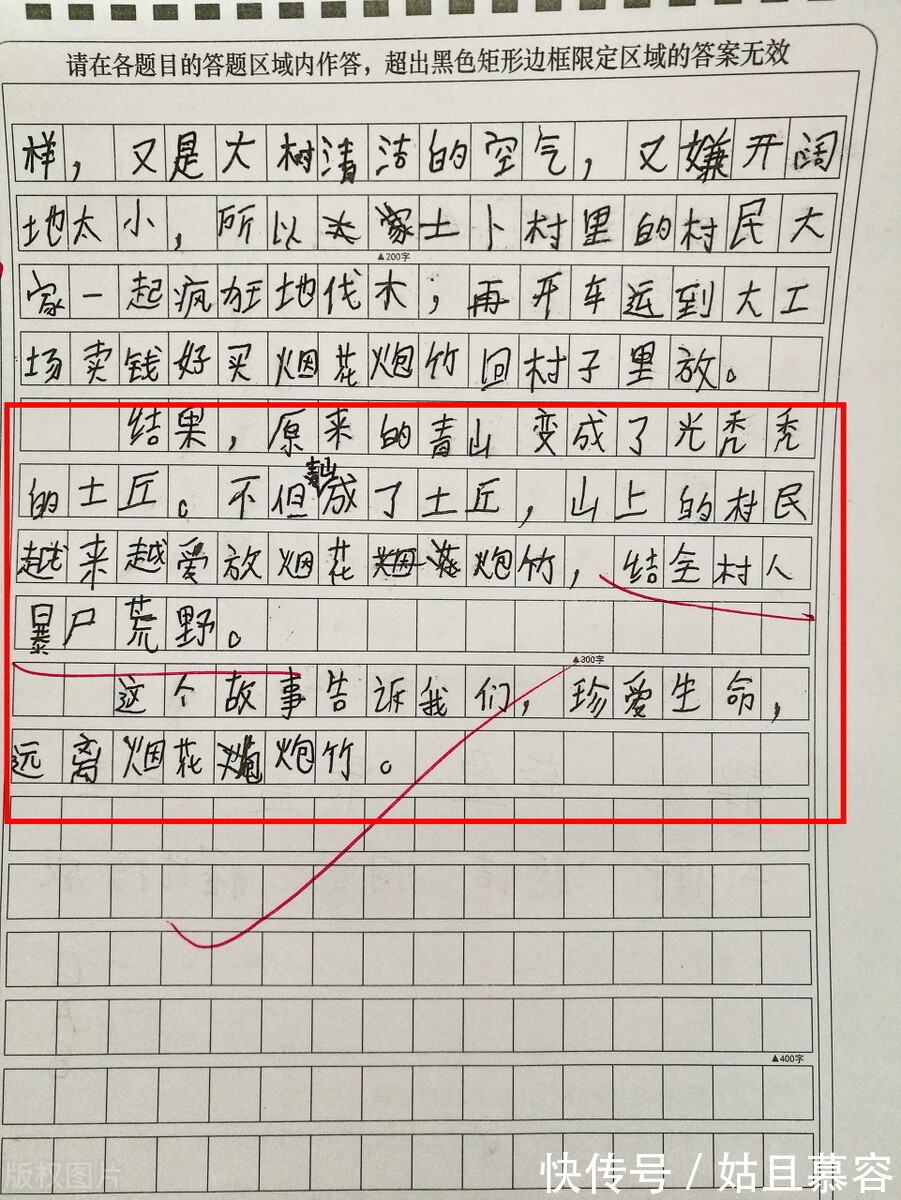 请在各题目的答题区域内作答，超出黑色矩形边框限定区域的答案无效
样，又是大树清洁的空气，又嫌开阔
地太小，所以大家土卜村里的村民大
▲200字
家一起疯狂地伐木，再开车运到大工
场卖钱好买烟花炮竹回村子里放。
结果，原来的青山变成了光秃秃
的土丘。不但青山成了土丘，山上的村民
越来越爱放烟花炮竹，结全村人
暴尸荒野。
▲300字
这个故事告诉我们，珍爱生命，
远离烟花炮竹。
▲400字
版权图片
快传号 / 姑且慕容